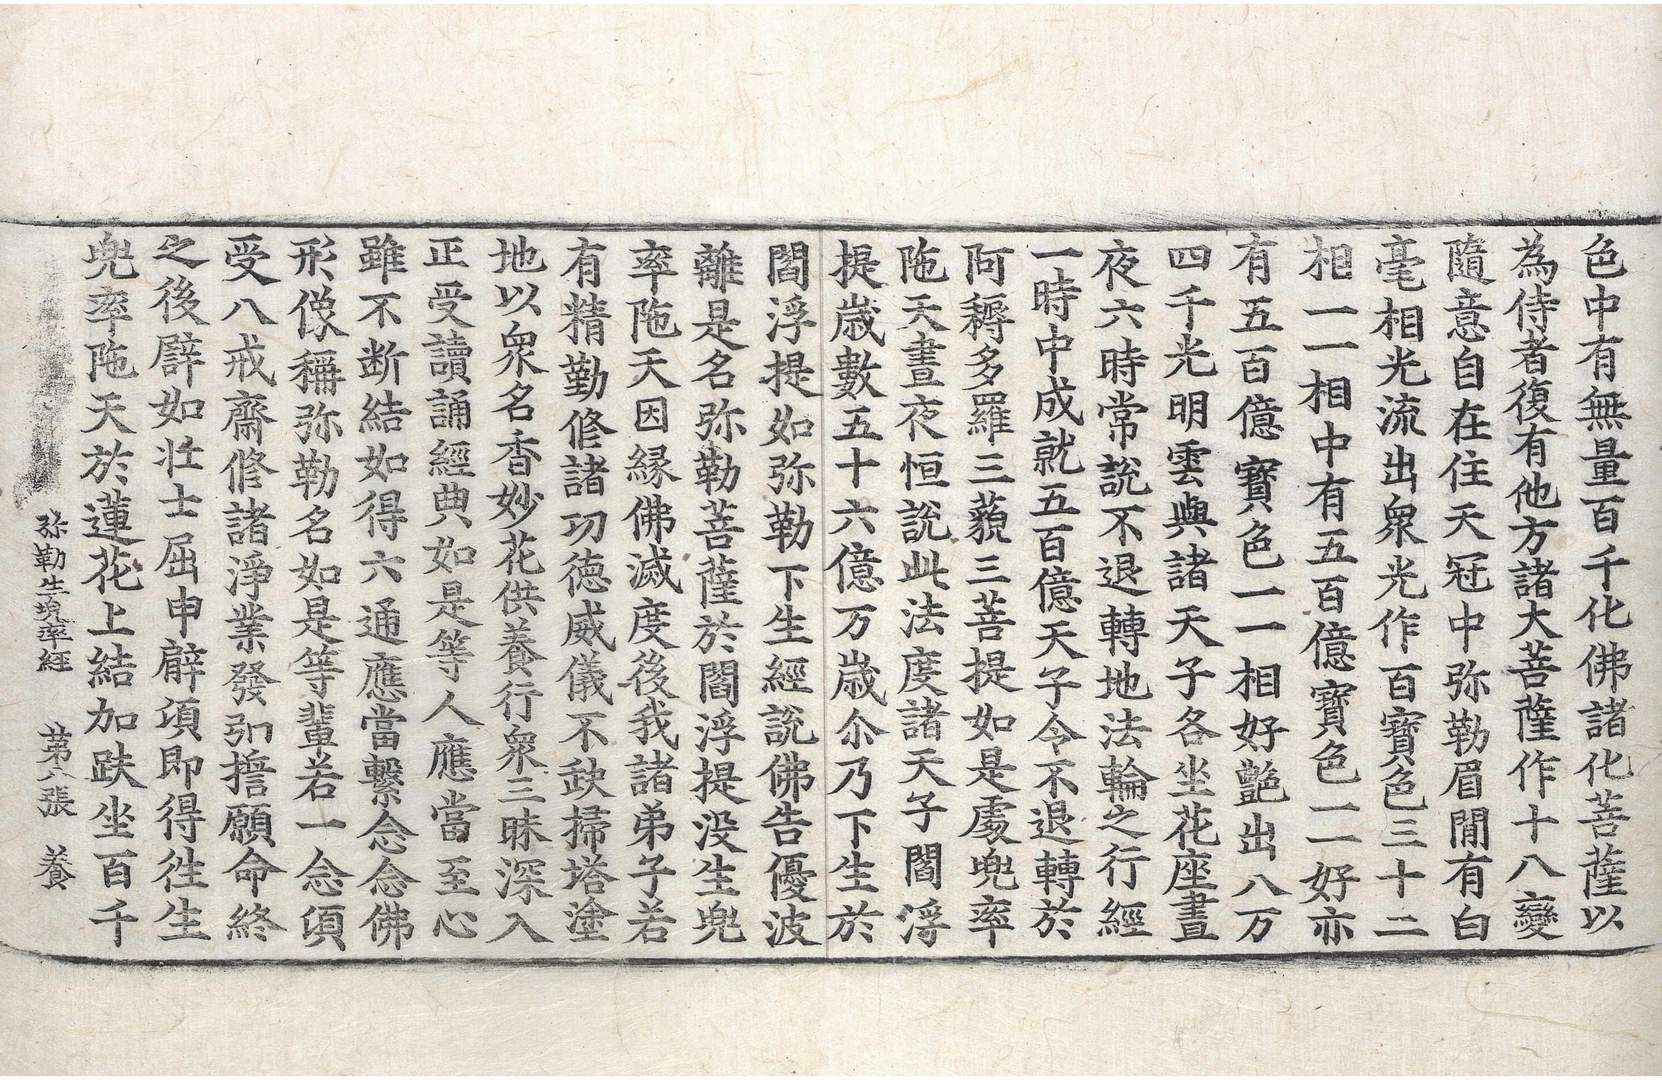 色中有無量百千化佛諸化菩薩以
為侍者復有他方諸大菩薩作十八變
隨意自在住天冠中弥勒眉間有白
毫相光流出衆光作百寶色三十二
相一一相中有五百億寶色一一好亦
有五百億寶色一一相好艶出八万
四千光明雲與諸天子各坐花座晝
夜六時常說不退轉地法輪之行經
一時中成就五百億天子令不退轉於
阿耨多羅三藐三菩提如是處兜率
陁天晝夜恒說此法度諸天子閻浮
提歲數五十六億万歲尒乃下生於
閻浮提如弥勒下生經說佛告優波
離是名弥勒菩薩於閻浮提没生兜
率陁天因緣佛滅度後我諸弟子若
有精勤修諸功德威儀不缺掃塔塗
地以衆名香妙花供養行衆三昧深入
正受讀誦經典如是等人應當至心
雖不断結如得六通應當繫念念佛
形像稱弥勒名如是等輩若一念頃
受八戒齋修諸淨業發弘誓願命終
之後譬如壮士屈申臂項即得徃生
兜率陁天於蓮花上結加趺坐百千
弥勒生兜率經 第六張 養